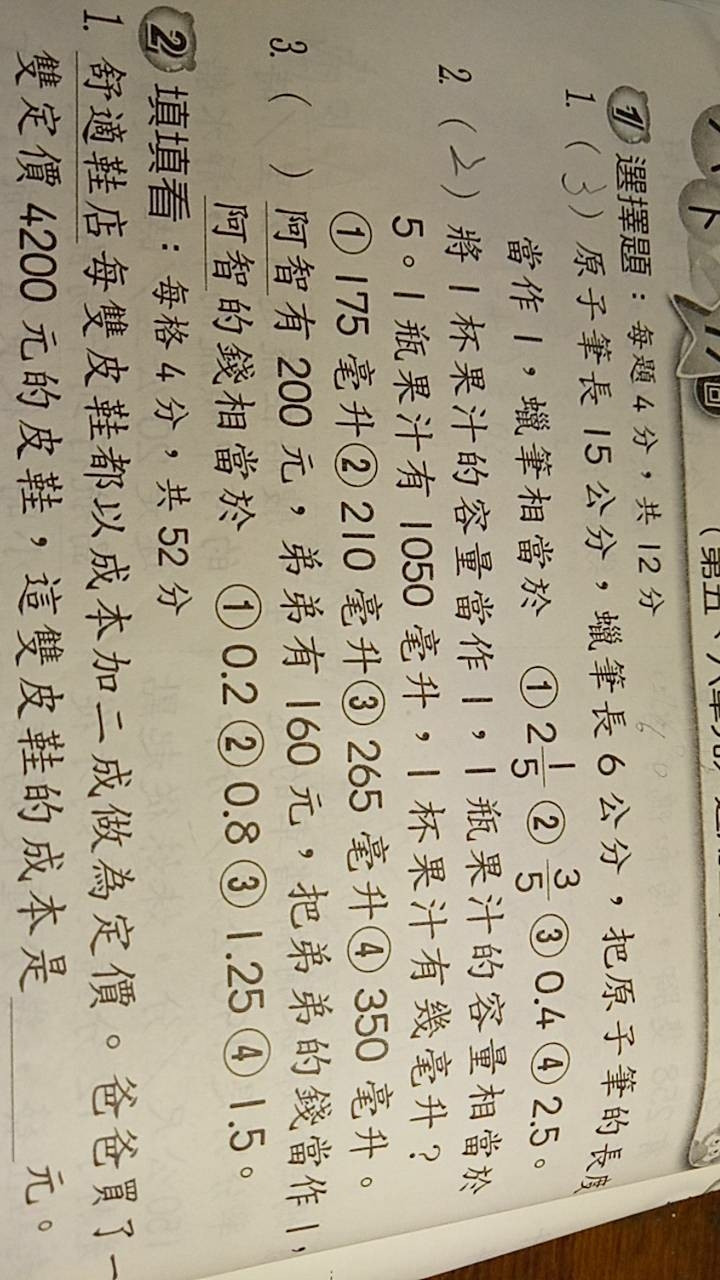 下
回
(第五、六單元
1 選擇題：每題4分，共12分
1.(3)原子筆長15公分，蠟筆長6公分，把原子筆的長度
當作1，蠟筆相當於 ①2 1/5 ②3/5 ③0.4 ④2.5。
2.(2)將1杯果汁的容量當作1，1瓶果汁的容量相當於
5。1瓶果汁有1050毫升，1杯果汁有幾毫升？
①175毫升②210毫升③265毫升④350毫升。
3.( )阿智有200元，弟弟有160元，把弟弟的錢當作1，
阿智的錢相當於 ①0.2②0.8③1.25④1.5。
2 填填看：每格4分，共52分
1.舒適鞋店每雙皮鞋都以成本加二成做為定價。爸爸買了一
雙定價4200元的皮鞋，這雙皮鞋的成本是______元。